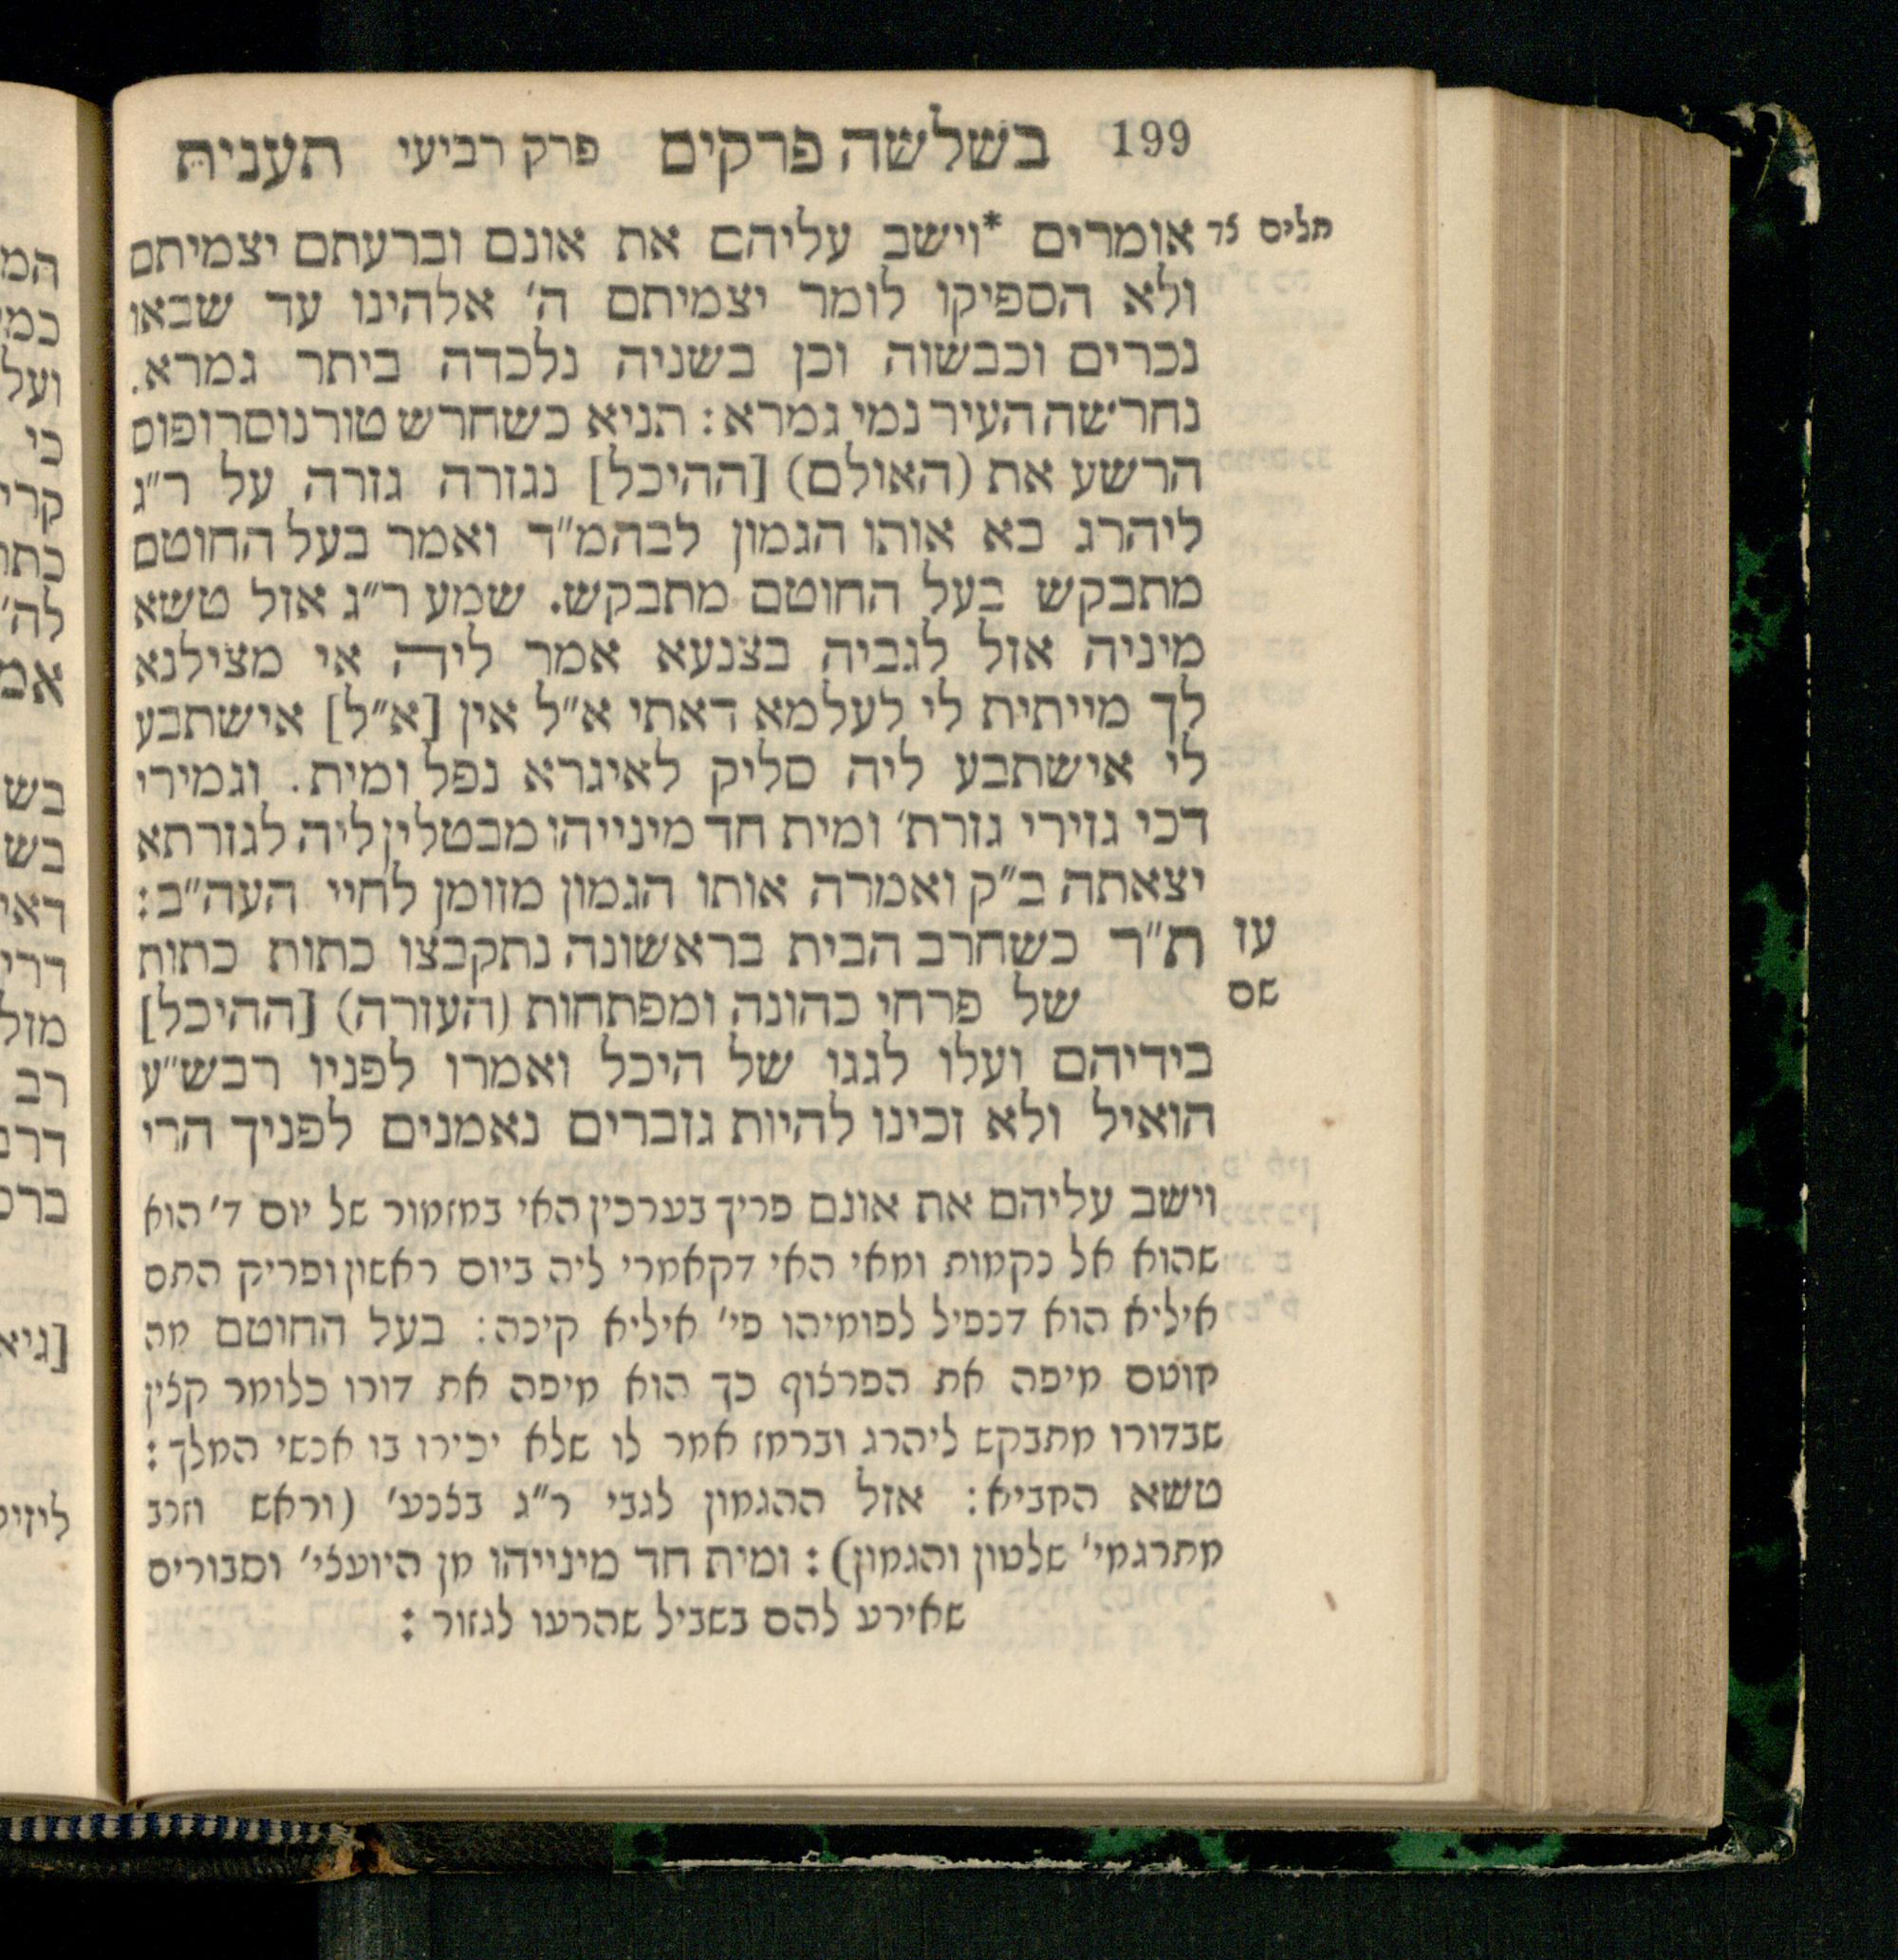 199 בשלשה פרקים פרק רביעי תענית
תלים צד
אומרים *וישב עליהם את אונם וברעתם יצמיתם
ולא הספיקו לומר יצמיתם ה׳ אלהינו עד שבאו
נכרים וכבשוה וכן בשניה נלכדה ביתר גמרא.
נחרשה העיר נמי גמרא: תניא כשחרש טורנוסרופוס
הרשע את (האולם) [ההיכל] נגזרה גזרה על ר״ג
ליהרג בא אותו הגמון לבהמ״ד ואמר בעל החוטם
מתבקש בעל החוטם מתבקש. שמע ר״ג אזל טשא
מיניה אזל לגביה בצנעא אמר ליה אי מצילנא
לך מייתית לי לעלמא דאתי א״ל אין [א״ל] אישתבע
לי אישתבע ליה סליק לאיגרא נפל ומית. וגמירי
דכי גזירי גזרת׳ ומית חד מינייהו מבטלין ליה לגזרתא
יצאתה ב״ק ואמרה אותו הגמון מזומן לחיי העה״ב:
עז ת״ר כשחרב הבית בראשונה נתקבצו כתות כתות
שם של פרחי כהונה ומפתחות (העזרה) [ההיכל]
בידיהם ועלו לגגו של היכל ואמרו לפניו רבש״ע
הואיל ולא זכינו להיות גזברים נאמנים לפניך הרי
וישב עליהם את אונם פריך בערכין האי במזמור של יום ד׳ הוא
שהוא אל נקמות ומאי האי דקאמרי ליה ביום ראשון ופריק התם
איליא הוא דנפיל לפומיהו פי׳ איליא קינה: בעל החוטם מה
חוטם מיפה את הפרצוף כך הוא מיפה את דורו כלומר קצין
שבדורו מתבקש ליהרג וברמז אמר לו שלא יכירו בו אנשי המלך:
טשא החביא: אזל ההגמון לגבי ר״ג בצנע׳ (וראש וזנב
מתרגמי׳ שלטון והגמון): ומית חד מינייהו מן היועצי׳ וסבורים
שאירע להם בשביל שהרעו לגזור: